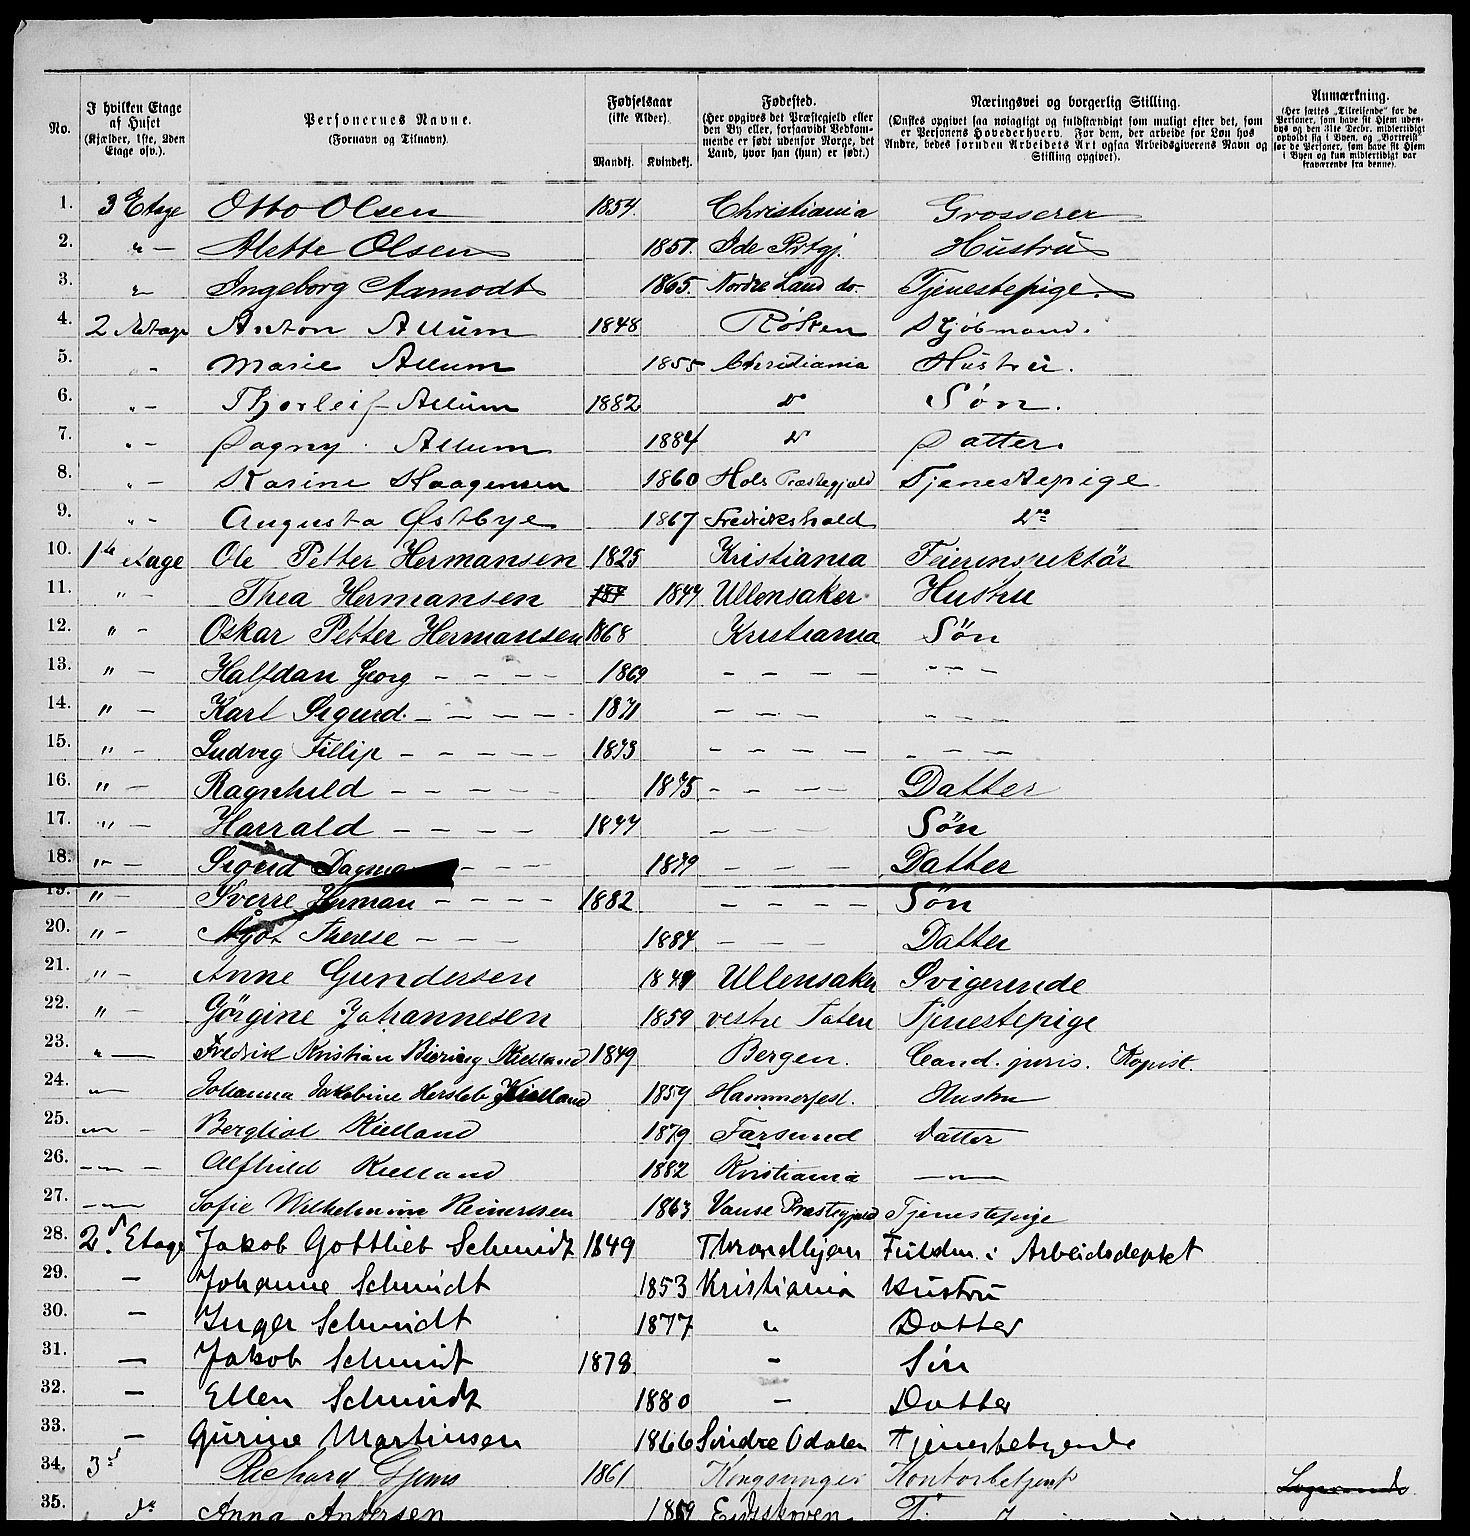 No. I hvilken Etage af Huset (Kjælder, 1ste, 2den Etage osv.). Personernes Navne. (Fornavn og Tilnavn). Fødselsaar (ikke Alder). Mandkj. Kvindekj. Fødested. (Her opgives det Præstegjeld eller den By eller, forsaavidt Vedkommende er født udenfor Norge, det Land, hvor han (hun) er født.) Næringsvei og borgerlig Stilling. (Ønskes opgivet saa nøiagtigt og fuldstændigt som muligt efter det, som er Personens Hovederhverv. For dem, der arbeide for Løn hos Andre, bedes foruden Arbeidets Art ogsaa Arbeidsgiverens Navn og Stilling opgivet). Anmærkning. (Her sættes „Tilreisende" for de Personer, som have sit Hjem udenbys og den 31te Decbr. midlertidigt opholdt sig i Byen, og „Bortreist" for de Personer, som have sit Hjem i Byen og kun midlertidigt var fraværende fra denne).
1. 3 Etage Otto Olsen 1854. Christiania Grosserer
2. " — Alette Olsen 1857. Ide Prtgj. Hustru
3. " Ingeborg Aamodt 1865. Nordre Land do. Tjenestepige.
4. 2 Etage Anton Allum 1848 Røken Kjøbmand.
5. " Marie Allum 1855 Christiania Hustru.
6. " — Thorleif Allum 1882 do Søn.
7. " — Dagny Allum 1884 do Datter.
8. " — Karine Haagensen 1860 Hols Præstegjeld Tjenestepige
9. " — Augusta Østbye 1867 Fredrikshald do
10. 1te Etage Ole Petter Hermansen 1825 Kristiania Feierinspektør
11. " — Thea Hermansen 1847 Ullensaker Hustru
12. " — Oskar Petter Hermansen 1868 Kristiania Søn
13. " — Halfdan Georg — — — — 1869 — — — — — — —
14. " — Karl Sigurd. — — — — 1871 — — — — — — —
15. " — Ludvig Fillip — — — — — 1873 — — — — — — —
16. " — Ragnhild — — — — — 1875 — — — — Datter
17. " — Harrald — — — — 1877 — — — — Søn
18. " — Sigrid Dagmar — — 1879 — — — Datter
19. " — Sverre Herman — — — — 1882 — — — — Søn
20. " — Ågot Therese — — — 1884 — — — Datter
21. " — Anne Gundersen 1849 Ullensaker Svigerinde
22. " — Görgine Johannesen 1859 vestre Toten Tjenestepige
23. " — Fredrik Kristian Biering Kielland 1849 Bergen. Cand. juris. Kopist.
24. " — Johanna Jakobine Hersleb Kielland 1859 Hammerfest. Hustru
25. " — Bergliot Kielland 1879 Farsund Datter
26. — " — Alfhild Kielland 1882 Kristiania — " —
27. — " — Sofie Wilhelmine Reinertsen 1863 Vanse Præstegjeld Tjenestepige
28. 2d. Etage Jakob Gottlieb Schmidt 1849 Throndhjem Fuldm. i Arbeidsdeptet
29. — Johanne Schmidt 1853 Kristiania Hustru
30. — Inger Schmidt 1877 " Datter
31. — Jakob Schmidt 1878 — Søn
32. — Ellen Schmidt 1880 — Datter
33. — Gurine Martinsen 1866 Søndre Odalen Tjenestetyende
34. 3d Richard Gjems 1861 Kongsvinger Kontorbetjent Logerende
35. do Anna Andersen 1859